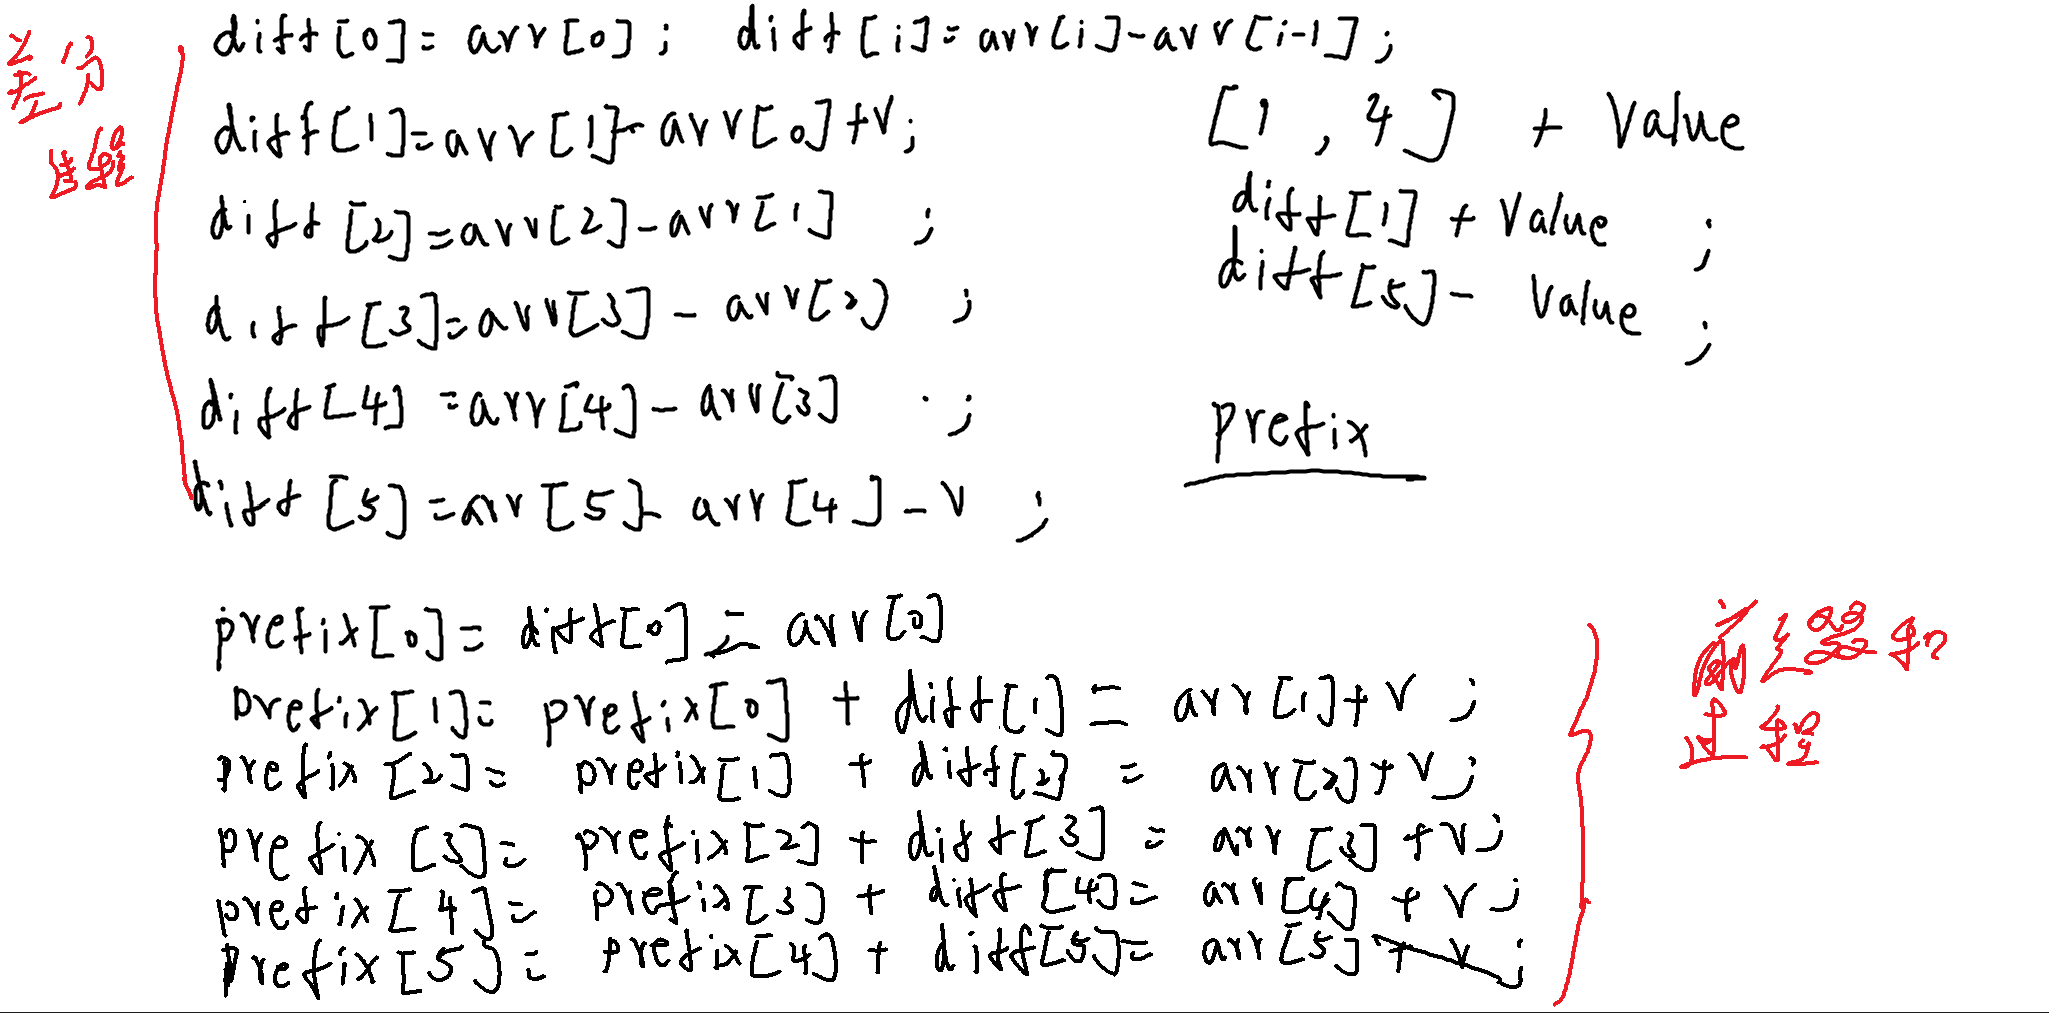 差分
过程
diff[0]= arr[0]; diff[i]=arr[i]-arr[i-1];
diff[1]=arr[1]-arr[0]+v;
diff[2]=arr[2]-arr[1] ;
diff[3]=arr[3]-arr[2] ;
diff[4]=arr[4]-arr[3] ;
diff[5]=arr[5]-arr[4]-v ;
[1,4] + Value
diff[1]+Value ;
diff[5]-Value ;
prefix
prefix[0]= diff[0]= arr[0]
prefix[1]= prefix[0] + diff[1]= arr[1]+v ;
prefix[2]= prefix[1] + diff[2] = arr[2]+v;
prefix[3]= prefix[2] + diff[3] = arr[3]+v;
prefix[4]= prefix[3] + diff[4]= arr[4]+v;
prefix[5]= prefix[4] + diff[5]= arr[5]+v;
前缀和
过程